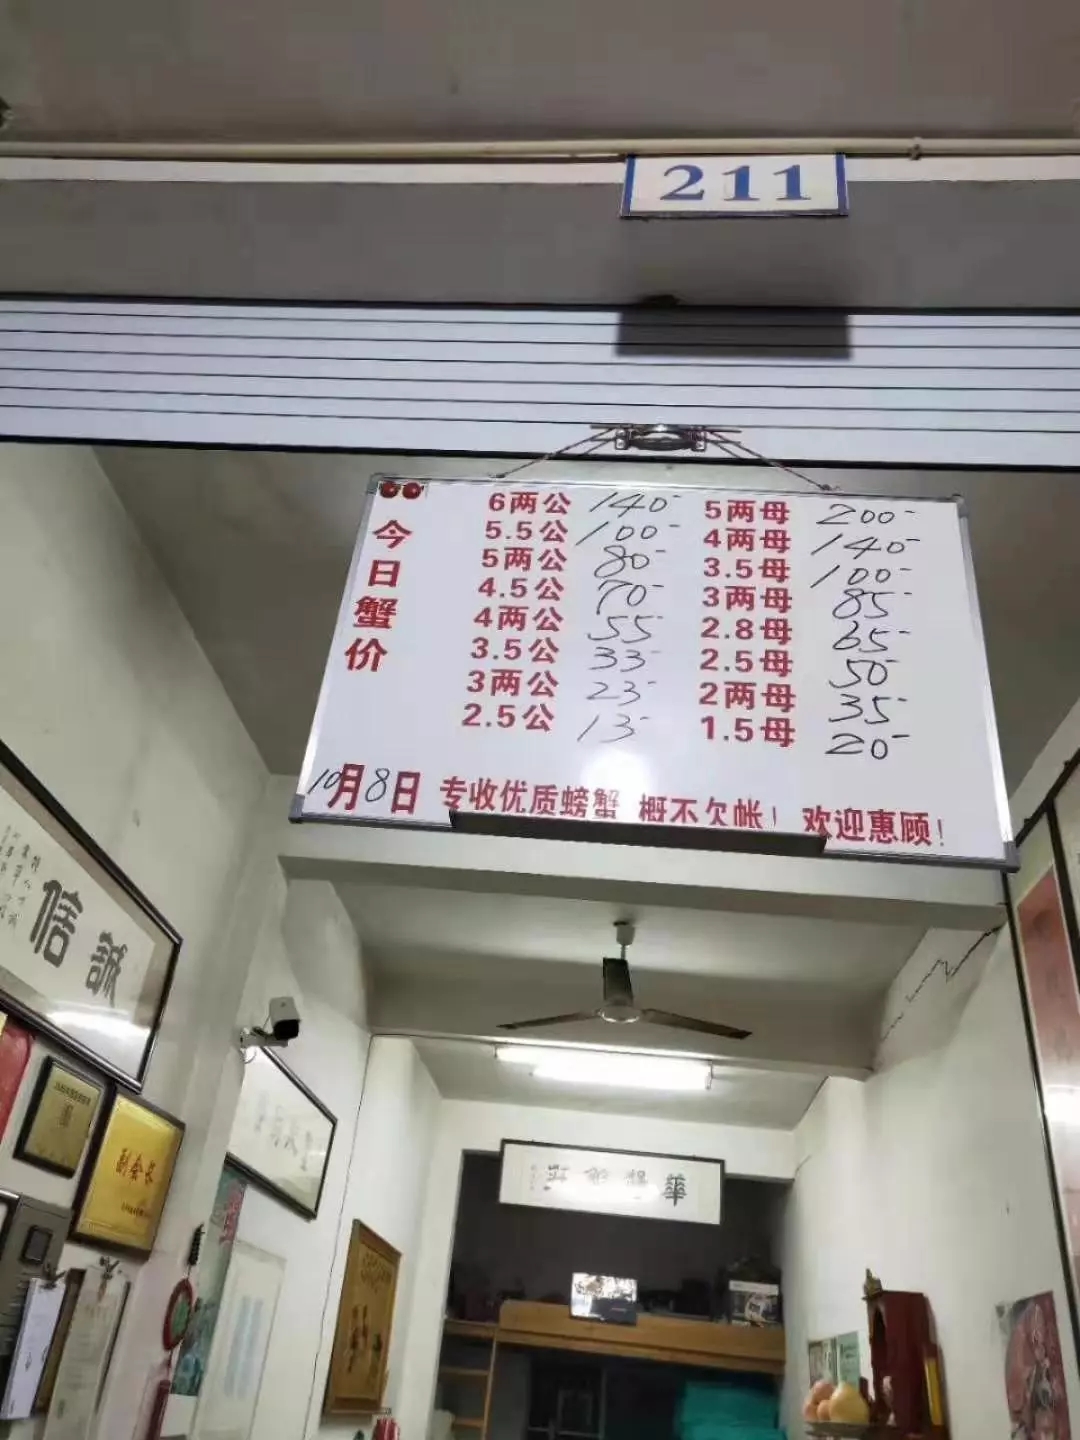 211
今日蟹价
6两公 140-
5.5公 100-
5两公 80-
4.5公 70-
4两公 55-
3.5公 33-
3两公 23-
2.5公 13-
5两母 200-
4两母 140-
3.5母 100-
3两母 85-
2.8母 65-
2.5母 50-
2两母 35-
1.5母 20-
10月8日 专收优质螃蟹 概不欠帐！欢迎惠顾！
信誠
副会长